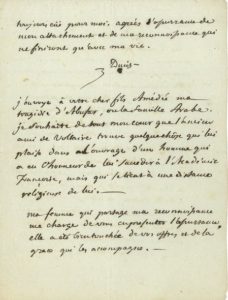 toujours été pour moi, agréés l'assurance de
mon attachement et de ma reconnaissance qui
ne finiront qu'avec ma vie.
Ducis
j'envoye à votre cher fils Amédée ma
tragédie d'Abufar, ou la famille Arabe.
je souhaite de tout mon cœur que l'ancien
ami de Voltaire trouve quelque chose qui lui
plaise dans l'ouvrage d'un homme qui
a eu l'honneur de lui succéder à l'Académie
Françoise, mais qui se tient à une distance
religieuse de lui.
ma femme qui partage ma reconnaissance
me charge de vous en présenter l'assurance,
elle a été touchée de vos offres et de la
grace qui les accompagne.